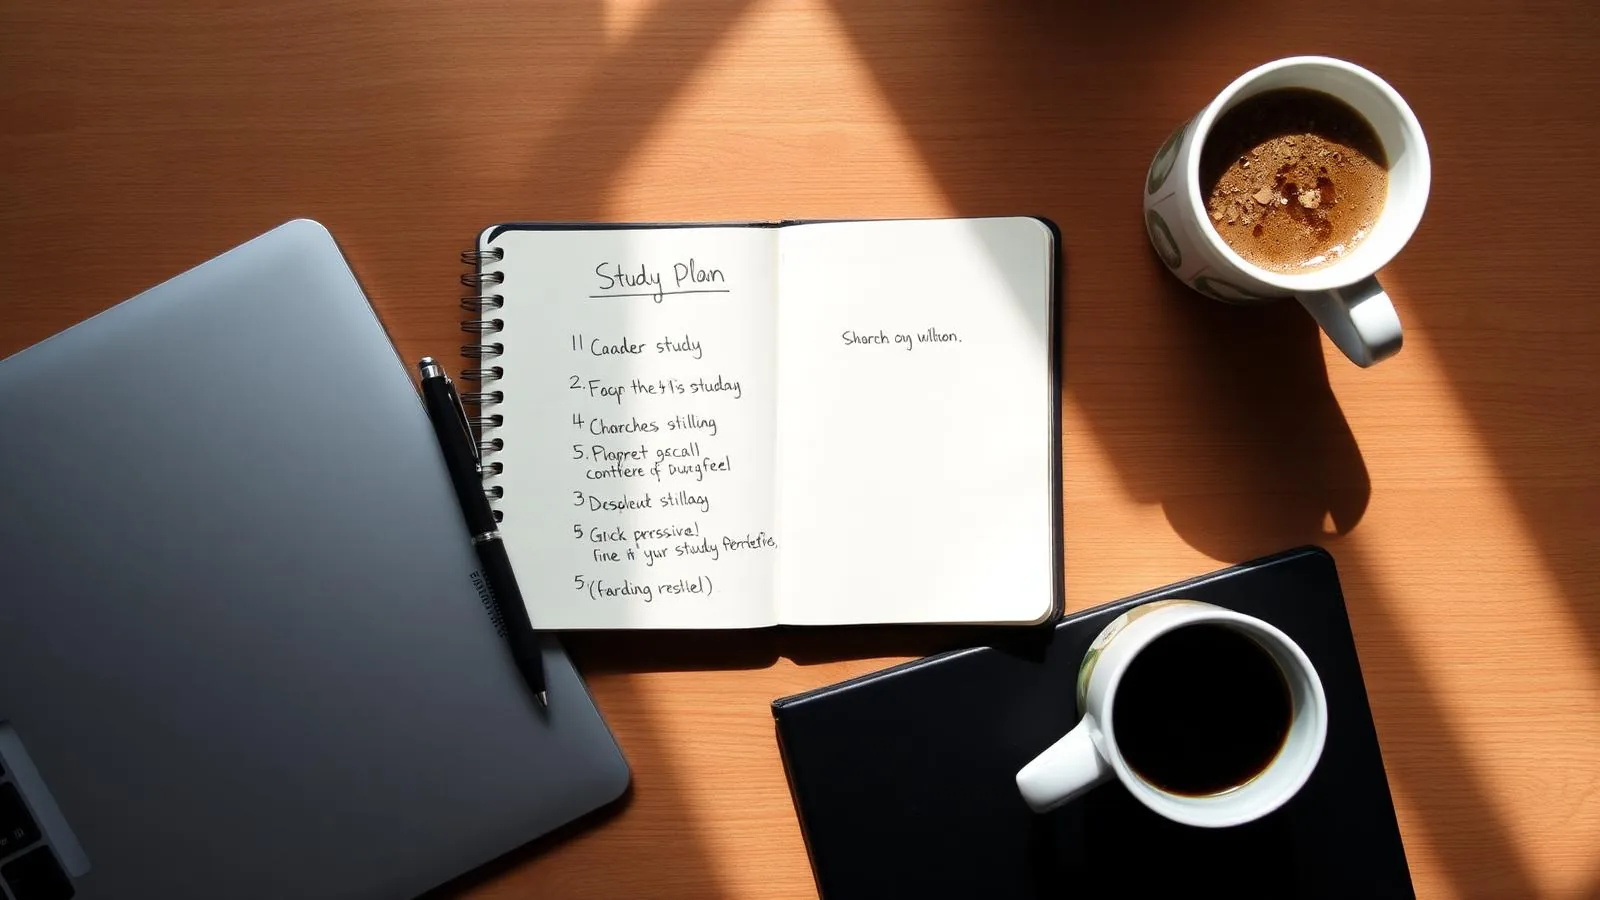 Study Plan
11 Caader study
2. Facp the 41s studay
4 Charches stilling
5. Plapret gscall
conthere of Dungfeel
3 Desoleut stillag
5 Gick prrssive!
fine is your study
5 (farding restlel)
Shorch oy wiltion.